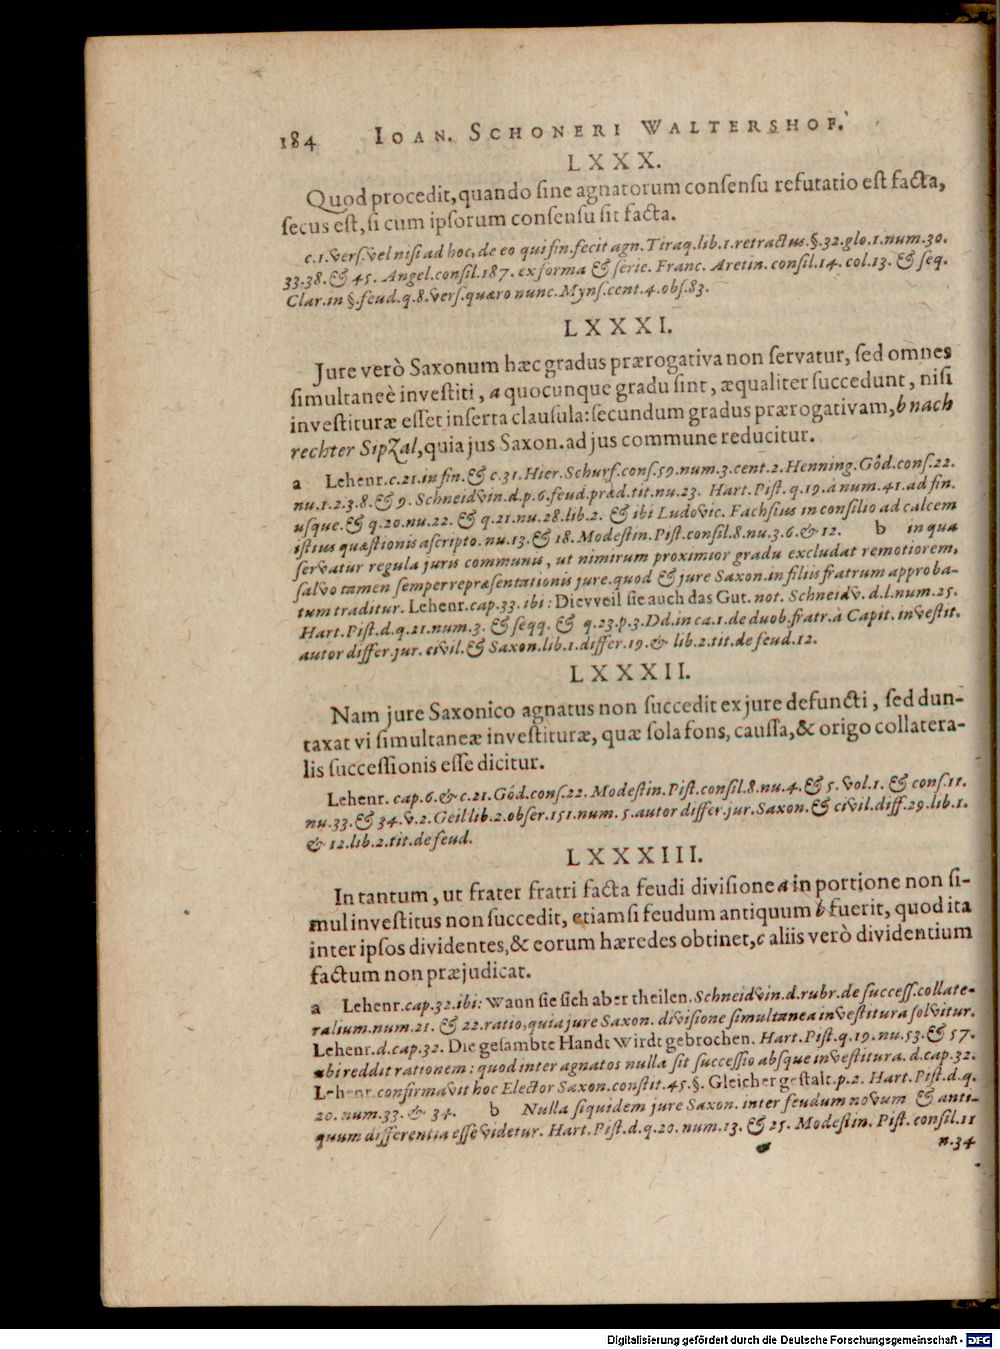 184 IOAN. SCHONERI WALTERSHOF.
LXXX.
Quod procedit, quando sine agnatorum consensu refutatio est facta,
secus est, si cum ipsorum consensu sit facta.
c.1. vers. vel nisi ad hoc, de eo qui fin. fecit agn. Tiraq. lib.1. retractus. §.32. glo.1. num.30.
33.38. & 45. Angel. consil.187. ex forma & serie. Franc. Aretin. consil.14. col.13. & seq.
Clar. in §. feud. q.8. vers. quæro nunc. Myns. cent.4. obs.83.
LXXXI.
Jure verò Saxonum hæc gradus prærogativa non servatur, sed omnes
simultaneè investiti, a quocunque gradu sint, æqualiter succedunt, nisi
investituræ esset inserta clausula: secundum gradus prærogativam, b nach
rechter SipZal, quia jus Saxon. ad jus commune reducitur.
a Lehenr. c.21. in fin. & c.31. Hier. Schurf. cons.59. num.3. cent.2. Henning. Gôd. cons.22.
nu.1.2.3.8. & 9. Schneidvin. d.p.6. feud. præd. tit. nu.23. Hart. Pist. q.19. à num.41. ad fin.
usque. & q.20. nu.22. & q.21. nu.28. lib.2. & ibi Ludovic. Fachsius in consilio ad calcem
istius quæstionis ascripto. nu.13. & 18. Modestin. Pist. consil.8. nu.3.6. & 12. b in qua
servatur regula juris communis, ut nimirum proximior gradu excludat remotiorem,
salvo tamen semper repræsentationis jure. quod & jure Saxon. in filiis fratrum approba-
tum traditur. Lehenr. cap.33. ibi: Dievveil sie auch das Gut. not. Schneidv. d.l. num.25.
Hart. Pist. d.q.21. num.3. & seqq. & q.23. p.3. Dd. in ca.1. de duob. fratr. à Capit. investit.
autor differ. jur. civil. & Saxon. lib.1. differ.19. & lib.2. tit. de feud.12.
LXXXII.
Nam jure Saxonico agnatus non succedit ex jure defuncti, sed dun-
taxat vi simultaneæ investituræ, quæ sola fons, caussa, & origo collatera-
lis successionis esse dicitur.
Lehenr. cap.6. & c.21. Gôd. cons.22. Modestin. Pist. consil.8. nu.4. & 5. vol.1. & cons.11.
nu.33. & 34. v.2. Geil lib.2. obser.151. num.5. autor differ. jur. Saxon. & civil. diff.29. lib.1.
& 12. lib.2. tit. de feud.
LXXXIII.
In tantum, ut frater fratri facta feudi divisione a in portione non si-
mul investitus non succedit, etiamsi feudum antiquum b fuerit, quod ita
inter ipsos dividentes, & eorum hæredes obtinet, c aliis verò dividentium
factum non præjudicat.
a Lehenr. cap.32. ibi: Wann sie sich aber theilen. Schneidvin. d. rubr. de success. collate-
ralium. num.21. & 22. ratio, quia jure Saxon. divisione simultanea investitura solvitur.
Lehenr. d. cap.32. Die gesambte Handt wirdt gebrochen. Hart. Pist. q.19. nu.53. & 57.
ubi reddit rationem: quod inter agnatos nulla sit successio absque investitura. d. cap.32.
Lehenr. confirmavit hoc Elector Saxon. constit.45. §. Gleicher gestalt. p.2. Hart. Pist. d.q.
20. num.33. & 34. b Nulla siquidem jure Saxon. inter feudum novum & anti-
quum differentia esse videtur. Hart. Pist. d.q.20. num.13. & 25. Modestin. Pist. consil.11
n.34
Digitalisierung gefördert durch die Deutsche Forschungsgemeinschaft - DFG